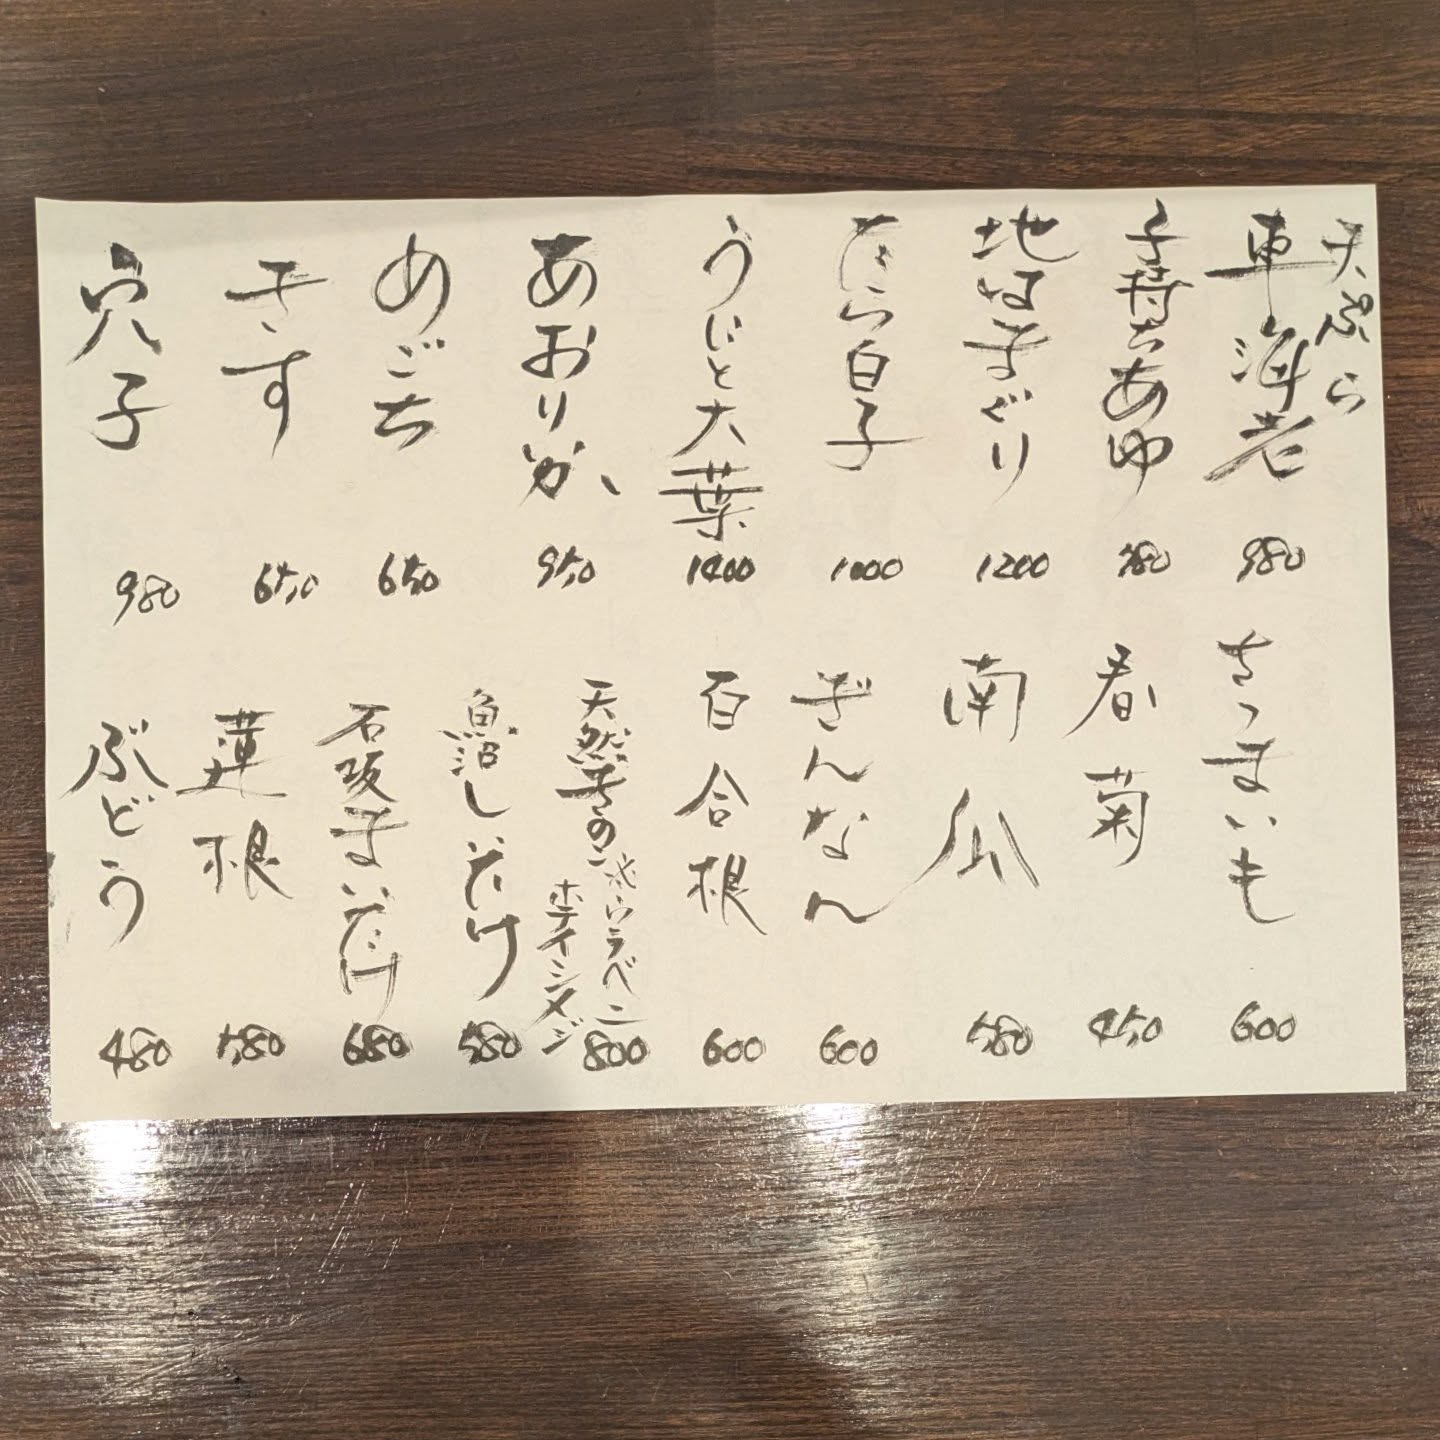 天ぷら
車海老 980
子持ちあゆ 780
地はまぐり 1200
たら白子 1000
うにと大葉 1400
あおりいか 950
めごち 650
きす 650
穴子 980
さつまいも 600
春菊 450
南瓜 580
ぎんなん 600
百合根 600
天然きのこ ウラベニ
ホテイシメジ 800
魚沼しいたけ 580
石坂まいたけ 680
蓮根 580
ぶどう 480